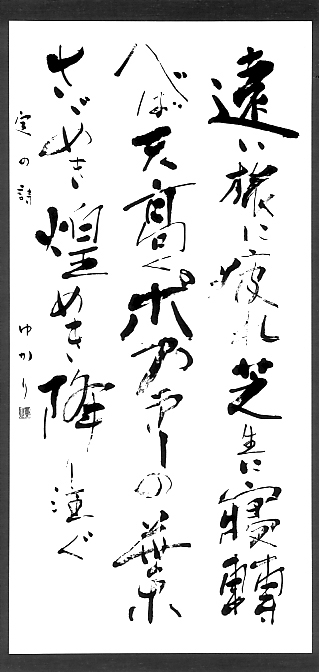 遠い旅に疲れ芝生に寝轉
べば天高くポプラーの葉
さゞめき煌めき降り注ぐ
実の詩 ゆかり